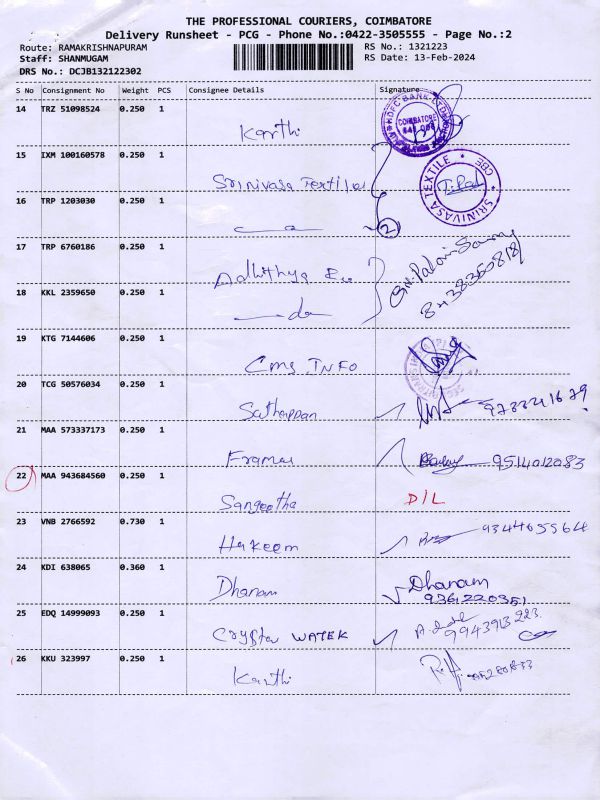 THE PROFESSIONAL COURIERS, COIMBATORE
Delivery Runsheet - PCG - Phone No.:0422-3505555 - Page No.:2
Route: RAMAKRISHNAPURAM
RS No.: 1321223
Staff: SHANMUGAM
RS Date: 13-Feb-2024
DRS No.: DCJB132122302
S No Consignment No Weight PCS Consignee Details Signature
14 TRZ 51098524 0.250 1
Karthi
HDFC BANK LTD
COIMBATORE
15 IXM 100160578 0.250 1
Srinivasa Textiles
SRINIVASA TEXTILE CBE
16 TRP 1203030 0.250 1
2
17 TRP 6760186 0.250 1
Adhithya
18 KKL 2359650 0.250 1
do
19 KTG 7144606 0.250 1
CMS INFO
20 TCG 50576034 0.250 1
Sathappan
21 MAA 573337173 0.250 1
Frames 9514012083
22 MAA 943684560 0.250 1
Sangeetha D/L
23 VNB 2766592 0.730 1
Hakeem 9344055564
24 KDI 638065 0.360 1
Dhanam Dhanam
9361220351
25 EDQ 14999093 0.250 1
WATEK 9943913223
26 KKU 323997 0.250 1
Karthi